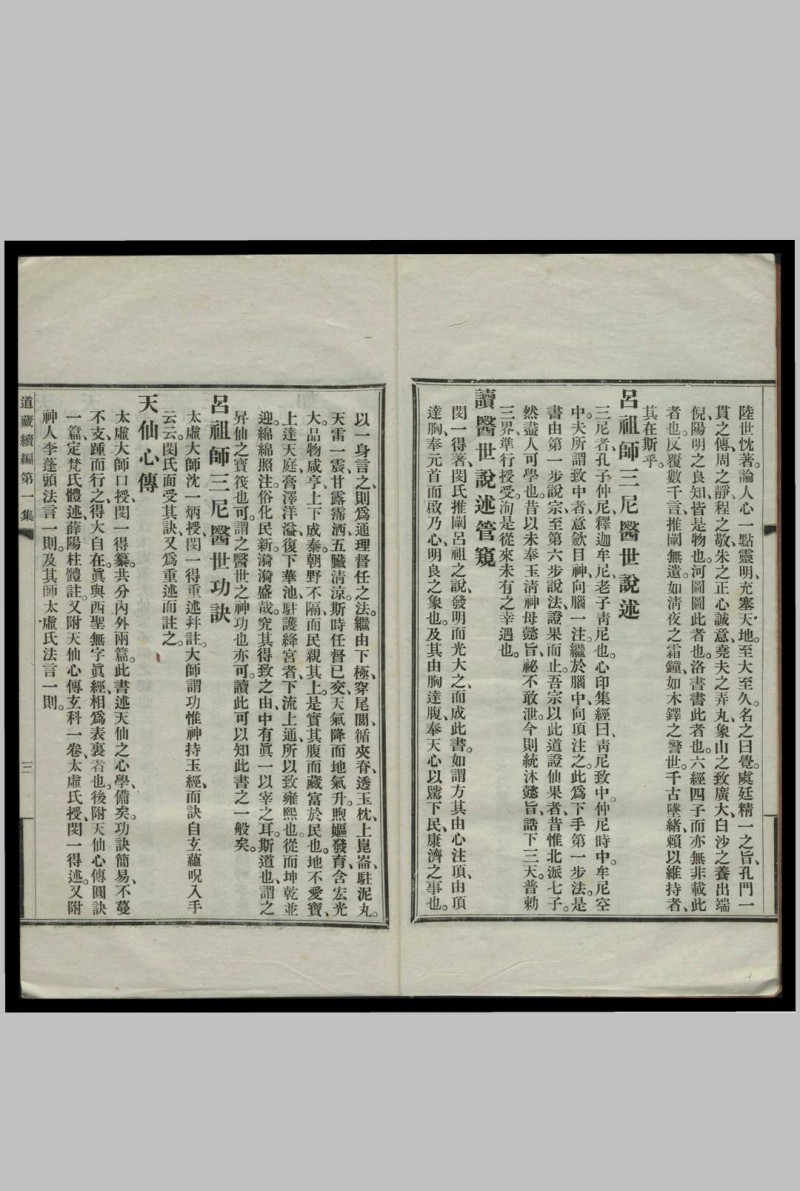 陸世忱著、論人心一點靈明、充塞天地、至大至久、名之曰覺。虞廷精一之旨、孔門一
貫之傳、周之靜、程之敬、朱之正心誠意、堯夫之弄丸、象山之致廣大、白沙之養出端
倪、陽明之良知、皆是物也。河圖圖此者也。洛書書此者也。六經四子、而亦無非載此
者也。反覆數千言、推闡無遺、如清夜之霜鐘、如木鐸之警世、千古墜緒、賴以維持者、
其在斯乎。
呂祖師三尼醫世說述
三尼者、孔子仲尼、釋迦牟尼、老子靑尼也。心印集經曰、靑尼致中、仲尼時中、牟尼空
中。夫所謂致中者、意歛目神、向腦一注、繼於腦中、向頂注之、此為下手第一步法。是
書由第一步說宗、至第六步說法證果而止。吾宗以此道證仙果者、昔惟北派七子。
然盡人可學也。昔以未奉玉清神母懿旨、祕不敢泄、今則統沐懿旨、誥下三天、普勅
三界、準行授受、洵是從來未有之幸遇也。
讀醫世說述管窺
閔一得著、閔氏推闡呂祖之說、發明而光大之、而成此書。如謂方其由心注頂、由頂
達胸、奉元首而啟乃心、明良之象也。及其由胸達腹、奉天心以隲下民、康濟之事也。
以一身言之、則爲通理督任之法。繼由下極、穿尾閭、循夾脊、透玉枕、上崑崙、駐泥丸。
天雷一震、甘露霈洒、五臟清涼、斯時任督已交、天氣降而地氣升、煦嫗發育、含宏光
大、品物咸亨、上下成泰、朝野不隔、而民親其上、是實其腹而藏富於民也。地不愛寶、
上達天庭、膏澤洋溢、復下華池、駐護絳宮者、下流上通、所以致雍熙也。從而坤乾並
迎、綿綿照注、俗化民新、漪漪盛哉。究其得致之由、中有眞一以宰之耳。斯道也、謂之
昇仙之寶筏也可、謂之醫世之神功也亦可。讀此可以知此書之一般矣。
呂祖師三尼醫世功訣
太虛大師沈一炳授、閔一得重述幷註。大師謂功惟神持玉經、而訣自玄蘊呪入手
云云。閔氏面受其訣、又爲重述而註之。
天仙心傳
太虛大師口授、閔一得纂、共分內外兩篇。此書述天仙之心學、備矣。功訣簡易、不蔓
不支、踵而行之、得大自在。眞與西聖無字眞經、相爲表裏者也。後附天仙心傳圓訣
一篇、定梵氏體述、薛陽柱體註。又附天仙心傳玄科一卷、太虛氏授、閔一得述。又附
神人李蓬頭法言一則、及其師太虛氏法言一則。
道藏續編第一集
三